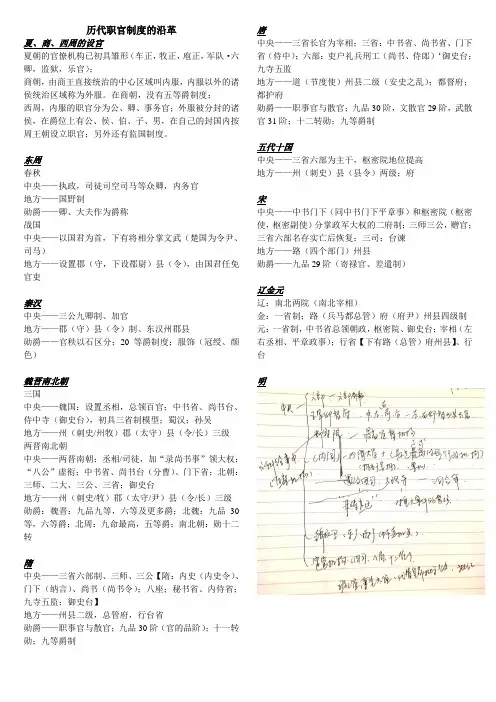 历代职官制度的沿革
夏、商、西周的设官
夏朝的官僚机构已初具雏形（车正，牧正，庖正，军队·六
卿，监狱，乐官）；
商朝，由商王直接统治的中心区域叫内服，内服以外的诸
侯统治区域称为外服。在商朝，没有五等爵制度；
西周，内服的职官分为公、卿、事务官；外服被分封的诸
侯，在爵位上有公、侯、伯、子、男，在自己的封国内按
周王朝设立职官；另外还有监国制度。
东周
春秋
中央——执政，司徒司空司马等众卿，内务官
地方——国野制
勋爵——卿、大夫作为爵称
战国
中央——以国君为首，下有将相分掌文武（楚国为令尹、
司马）
地方——设置郡（守，下设郡尉）县（令），由国君任免
官吏
秦汉
中央——三公九卿制、加官
地方——郡（守）县（令）制、东汉州郡县
勋爵——官秩以石区分；20 等爵制度；服饰（冠绶、颜
色）
魏晋南北朝
三国
中央——魏国：设置丞相，总领百官；中书省、尚书台、
侍中寺（御史台），初具三省制模型；蜀汉；孙吴
地方——州（刺史/州牧）郡（太守）县（令/长）三级
两晋南北朝
中央——两晋南朝：丞相/司徒，加“录尚书事”领大权；
“八公”虚衔；中书省、尚书台（分曹）、门下省；北朝：
三师、二大、三公、三省；御史台
地方——州（刺史/牧）郡（太守/尹）县（令/长）三级
勋爵：魏晋：九品九等，六等及更多爵；北魏：九品 30
等，六等爵；北周：九命最高，五等爵；南北朝：勋十二
转
隋
中央——三省六部制、三师、三公【隋：内史（内史令）、
门下（纳言）、尚书（尚书令）；八座；秘书省、内侍省；
九寺五监；御史台】
地方——州县二级，总管府，行台省
勋爵——职事官与散官；九品 30 阶（官的品阶）；十一转
勋；九等爵制
唐
中央——三省长官为宰相；三省：中书省、尚书省、门下
省（侍中）；六部：吏户礼兵刑工（尚书、侍郎）‘御史台；
九寺五监
地方——道（节度使）州县二级（安史之乱）；都督府；
都护府
勋爵——职事官与散官；九品 30 阶，文散官 29 阶，武散
官 31 阶；十二转勋；九等爵制
五代十国
中央——三省六部为主干，枢密院地位提高
地方——州（刺史）县（县令）两级；府
宋
中央——中书门下（同中书门下平章事）和枢密院（枢密
使，枢密副使）分掌政军大权的二府制；三师三公，赠官；
三省六部名存实亡后恢复；三司；台谏
地方——路（四个部门）州县
勋爵——九品 29 阶（寄禄官、差遣制）
辽金元
辽：南北两院（南北宰相）
金：一省制；路（兵马都总管）府（府尹）州县四级制
元：一省制，中书省总领朝政，枢密院、御史台；宰相（左
右丞相、平章政事）；行省【下有路（总管）府州县】、行
台
明
中央